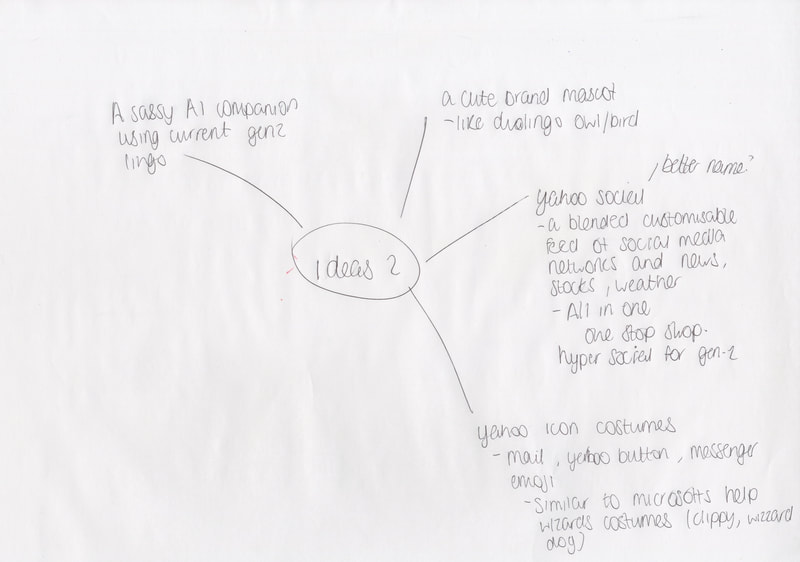 A sassy AI companion
using current genz
lingo
a cute brand mascot
- like duolingo owl/bird
, better name?
yahoo social
- a blended customisable
feed of social media
networks and news,
stocks, weather
- All in one
one stop shop.
hyper social for gen-z
ideas 2
yahoo icon costumes
- mail, yahoo button, messenger
emoji
- Similar to microsofts help
wizards costumes (clippy, wizzard
dog)